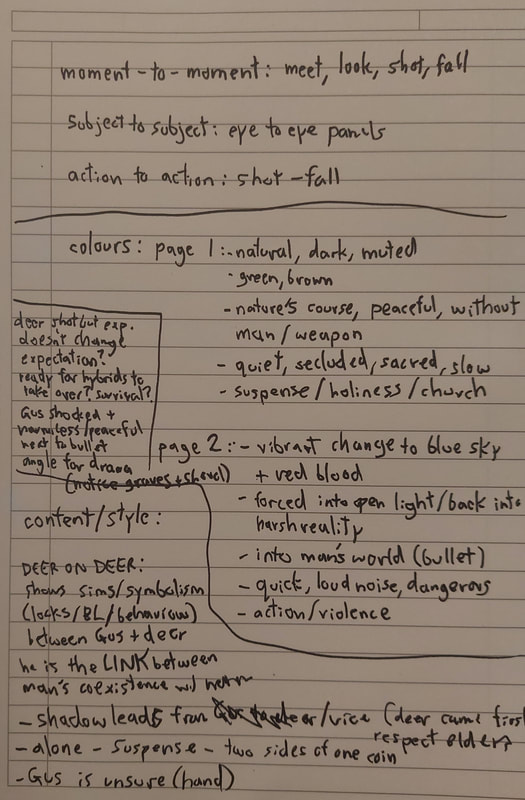 moment-to-moment: meet, look, shot, fall
subject to subject: eye to eye panels
action to action: shot-fall
colours: page 1:- natural, dark, muted
· green, brown
- nature's course, peaceful, without
man/weapon
- quiet, secluded, sacred, slow
- suspense/holiness/church
deer shot but exp.
doesn't change
expectation?
ready for hybrids to
take over? survival?
Gus shocked +
harmless/peaceful
next to bullet
angle for drama
(notice graves + shovel)
page 2:- vibrant change to blue sky
+ red blood
- forced into open light/back into
harsh reality
- into man's world (bullet)
- quick, loud noise, dangerous
- action/violence
content/style:
DEER ON DEER:
shows sims/symbolism
(looks/BL/behaviour)
between Gus + deer
he is the LINK between
man's coexistence w/
- shadow leads from deer/vice (deer came first
respect elder?
- alone - suspense - two sides of one coin
- Gus is unsure (hand)